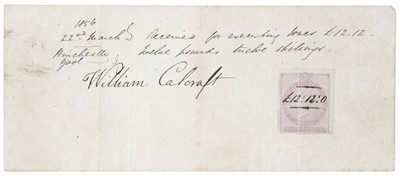 1856
22nd March } Received for executing Jones £12.12-
Winchester } twelve pounds twelve shillings.
Gaol
William Calcraft
£12:12:0